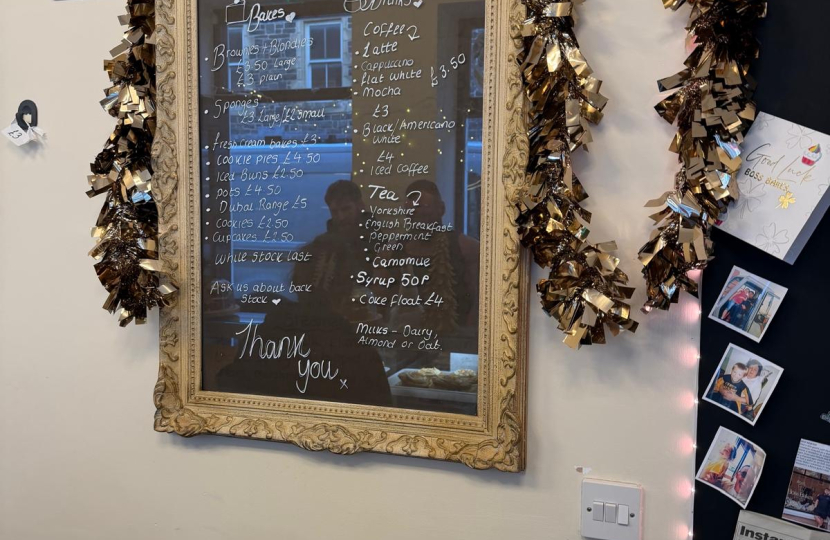 Bakes
• Brownies + Blondies
£3.50 large
£3 plain
• Sponges
£3 Large/£2 small
Fresh cream bakes £3
• Cookie pies £4.50
• Iced Buns £2.50
• pots £4.50
• Dubai Range £5
• Cookies £2.50
• Cupcakes £2.50
While stock last
Ask us about back
stock
Thank
you x
Drinks
Coffee
• Latte
• Cappuccino
• flat white £3.50
• Mocha
£3
• Black/Americano
White
£4
• Iced coffee
Tea
• Yorkshire
• English Breakfast
• Peppermint
• Green
• Camomile
• Syrup 50p
• Coke Float £4
Milks - Dairy,
Almond or Oat.
£3
Good luck
BOSS BAKES
Insta